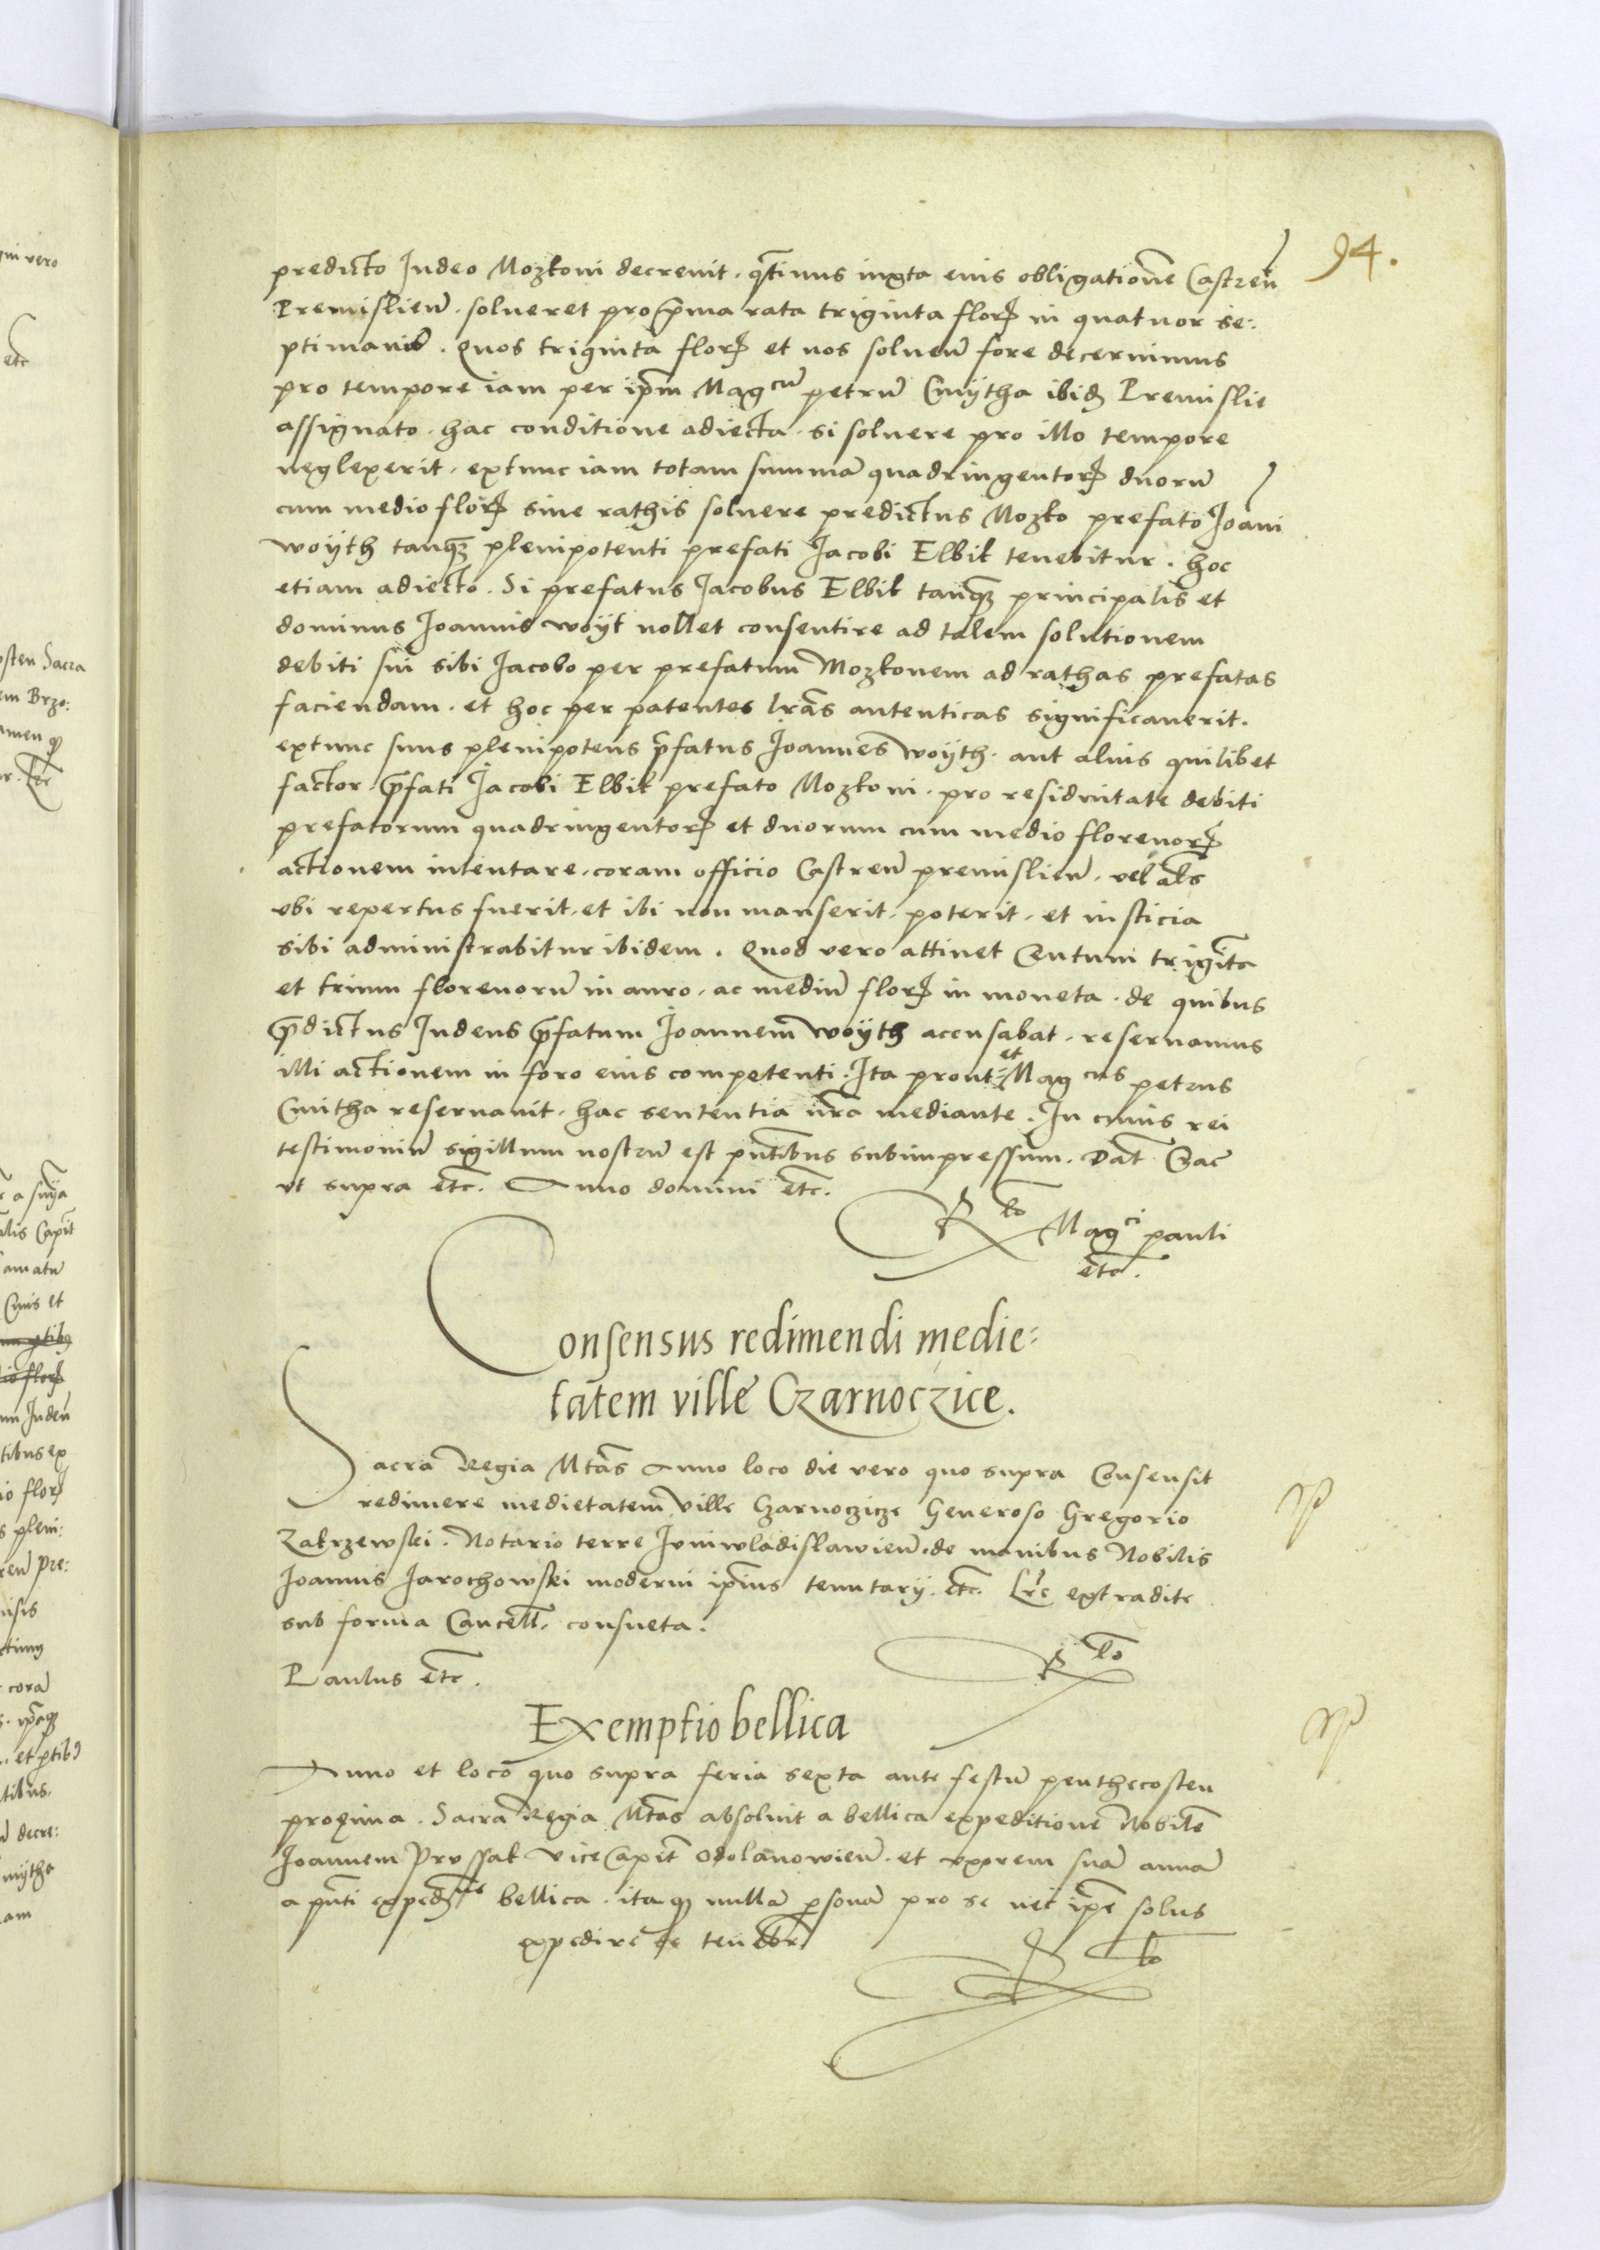 94.
predicto Judeo Mozkoni decrevit. q̃tinus iuxta eius obligatione᷈ Castren̄
Premislien̄. solveret pro p̄ma rata triginta flor in quatuor se:
ptimanis. Quos triginta flor et nos solven̄ fore decernimus
pro tempore iam per ip̄m Mag᷈cu᷈ petru᷈ Cmytha ibid Premislie
assignato. hac conditione adiecta. si solvere pro illo tempore
neglexerit. extunc iam totam summa᷈ quadringentor duoru᷈
cum medio flor sine rathis solvere predictus Mozko prefato Joãni
Woyth tanq plenipotenti prefati Jacobi Elbik tenebitur. hoc
etiam adiecto. Si prefatus Jacobus Elbik tanq principalis et
dominus Joannis Woyt nollet consentire ad talem solutionem
debiti sui sibi Jacobo per prefatum Mozkonem ad rathas prefatas
faciendam. et hoc per patentes lr̃as autenticas significaverit.
extunc suus plenipotens p̄fatus Joannes Woyth. aut alius quilibet
factor p̄fati Jacobi Elbik prefato Mozkoni. pro residuitate debiti
prefatorum quadringentor et duorum cum medio florenor
actionem intentare. coram officio Castren̄ premislien̄. vel al̃s
ubi repertus fuerit. et ibi non manserit. poterit. et insticia
sibi administrabitur ibidem. Quod vero attinet Centum trigĩta
et trium florenoru᷈ in auro. ac mediu᷈ flor in moneta. de quibus
p̄dictus Judeus p̄fatum Joannem Woyth accusabat. reservamus
illi actionem in foro eius competenti. Ita prout et Mag cus petrus
Cmitha reservavit. hac sententia nr̃a mediante. In cuius rei
testimoniu᷈ sigillum nostru᷈ est pn̄tibus subimpressum. Dat̃ Crac̃
ut supra etc. Anno domini etc.
R to Mag ci pauli
etc.
Consensus redimendi medie:
tatem ville Czarnoczice.
Sacra Regia Mt̃as Anno loco die vero quo supra Consensit
redimere medietatem Ville Czarnoczicze Generoso Gregorio
Zakrzewski. Notario terre Juniwladislawien̄. de manibus Nobilis
Joannis Jarochowski moderni ip̄ius tenutarij. etc. Lr̃e extradite
sub forma Cancell. consueta.
Paulus etc.
R to
Exemptio bellica
Anno et loco quo supra feria sexta ante festu᷈ penthecosten
proxima. Sacra Regia Mt̃as absolvit a bellica expeditione Nobile᷈
Joannem Prussak ViceCapit̃ Odolanowien̄. et uxorem sua᷈ anna᷈
a pn̄ti exped ne bellica. ita q nulla᷈ p̱sona᷈ pro se nec ip̄e solus
expedire se tenebr
R to